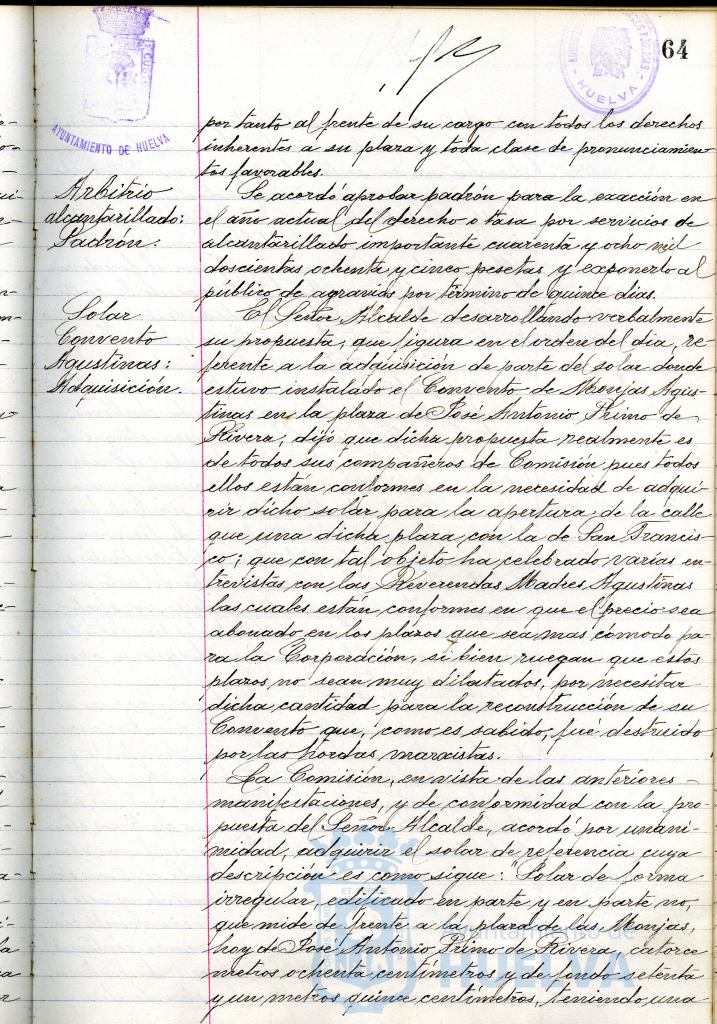 64
AYUNTAMIENTO DE HUELVA
HUELVA
por tanto al frente de su cargo con todos los derechos
inherentes a su plaza y toda clase de pronunciamien-
tos favorables.
Arbitrio
alcantarillado:
Padrón.
Se acordó aprobar padrón para la exacción en
el año actual del derecho o tasa por servicios de
alcantarillado importante cuarenta y ocho mil
doscientas ochenta y cinco pesetas y exponerlo al
público de agravios por término de quince dias.
Solar
Convento
Agustinas:
Adquisición.
El Señor Alcalde desarrollando verbalmente
su propuesta, que figura en el orden del dia, re-
ferente a la adquisición de parte del solar donde
estuvo instalado el Convento de Monjas Agus-
tinas en la plaza de José Antonio Primo de
Rivera, dijó que dicha propuesta realmente es
de todos sus compañeros de Comisión pues todos
ellos están conformes en la necesidad de adqui-
rir dicho solar para la apertura de la calle
que una dicha plaza con la de San Francis-
co; que con tal objeto ha celebrado varias en-
trevistas con las Reverendas Madres Agustinas
las cuales están conformes en que el precio sea
abonado en los plazos que sea mas cómodo pa-
ra la Corporación, si bien ruegan que estos
plazos no sean muy dilatados, por necesitar
dicha cantidad para la reconstrucción de su
Convento que, como es sabido, fué destruido
por las hordas marxistas.
La Comisión, en vista de las anteriores
manifestaciones, y de conformidad con la pro-
puesta del Señor Alcalde, acordó por unani-
midad, adquirir el solar de referencia cuya
descripción es como sigue: "Solar de forma
irregular, edificado en parte y en parte no,
que mide de frente a la plaza de las Monjas,
hoy de José Antonio Primo de Rivera, catorce
metros ochenta centímetros y de fondo setenta
y un metros quince centímetros, teniendo una
Ayuntamiento de
HUELVA